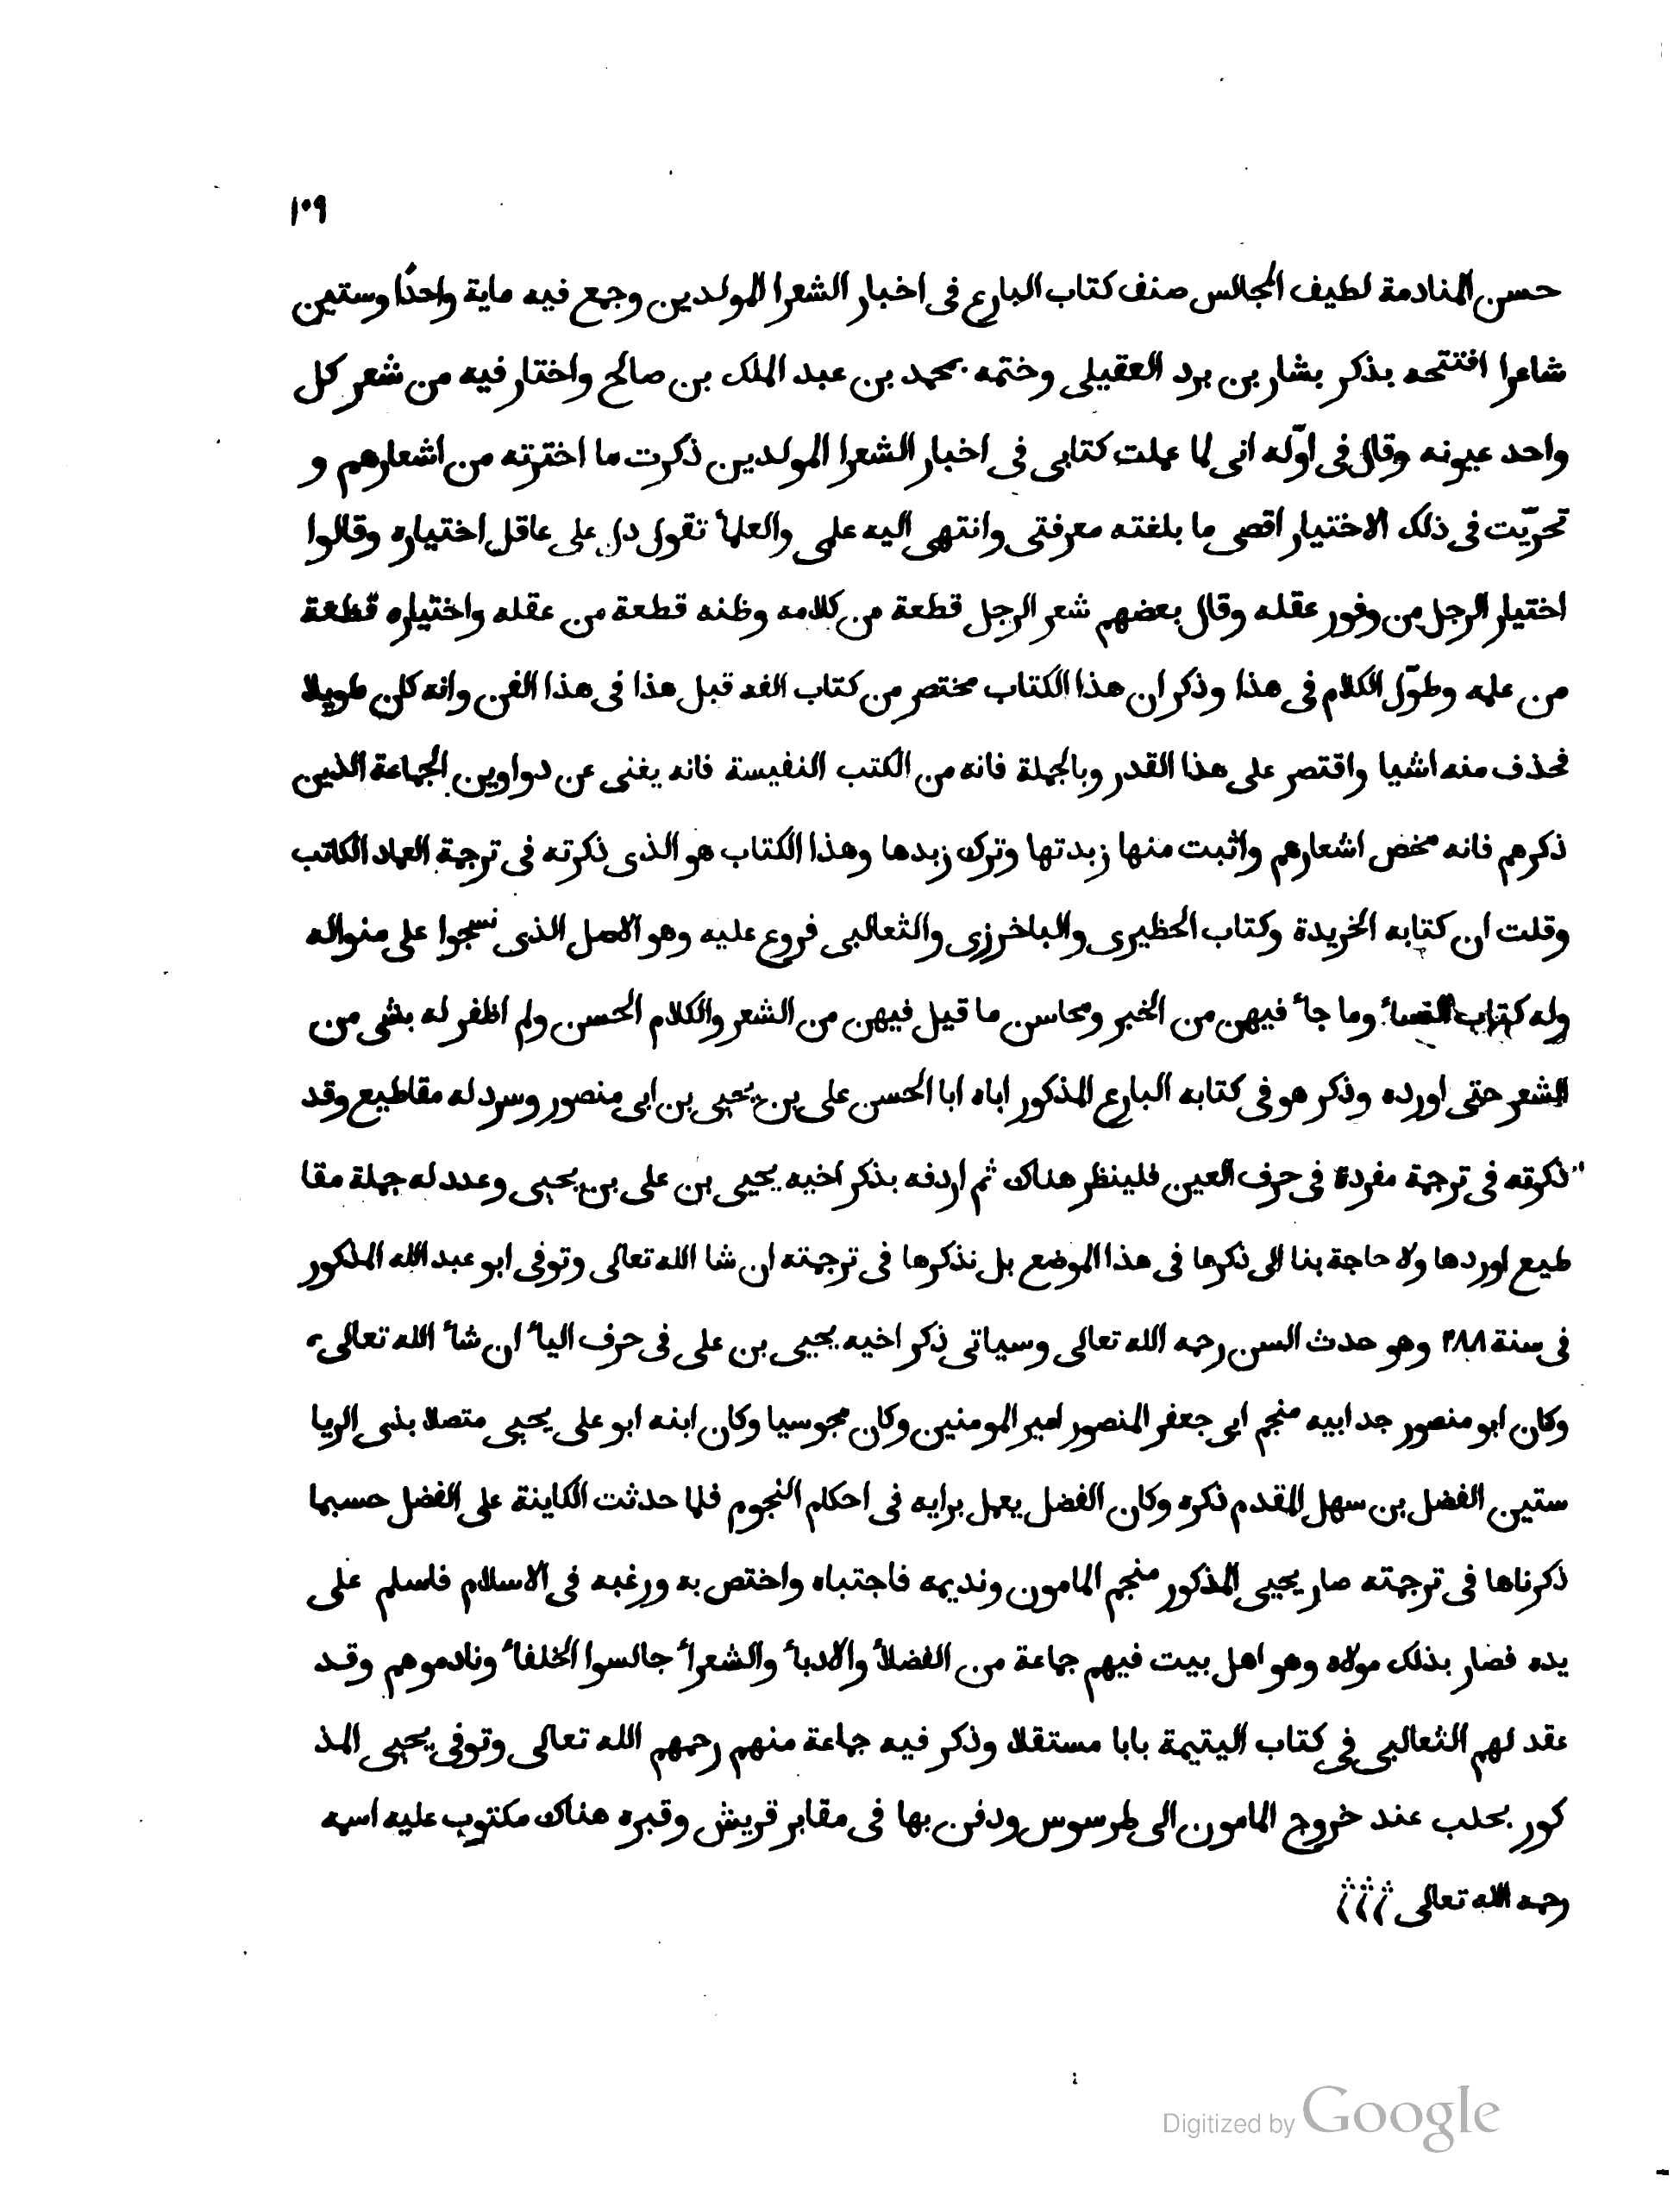 ١٠٩
حسن المنادمة لطيف المجالس صنف كتاب البارع فى اخبار الشعرا المولدين وجمع فيه ماية واحدًا وستين
شاعرا افتتحه بذكر بشار بن برد العقيلى وختمه بمحمد بن عبد الملك بن صالح واختار فيه من شعر كل
واحد عيونه وقال فى اوّله انى لما عملت كتابى فى اخبار الشعرا المولدين ذكرت ما اخترته من اشعارهم و
تحريّت فى ذلك الاختيار اقصى ما بلغته معرفتى وانتهى اليه علمى والعلمأ تقول دل على عاقل اختياره وقالوا
اختيار الرجل من وفور عقله وقال بعضهم شعر الرجل قطعة من كلامه وظنه قطعة من عقله واختياره قطعة
من علمه وطوّل الكلام فى هذا وذكر ان هذا الكتاب مختصر من كتاب الفه قبل هذا فى هذا الفن وانه كان طويلا
فحذف منه اشيا واقتصر على هذا القدر وبالجملة فانه من الكتب النفيسة فانه يغنى عن دواوين الجماعة الذين
ذكرهم فانه مخض اشعارهم واثبت منها زبدتها وترك زبدها وهذا الكتاب هو الذى ذكرته فى ترجمة العماد الكاتب
وقلت ان كتابه الخريدة وكتاب الحظيرى والباخرزى والثعالبى فروع عليه وهو الاصل الذى نسجوا على منواله
وله كتاب النسأ وما جأ فيهن من الخبر ومحاسن ما قيل فيهن من الشعر والكلام الحسن ولم اظفر له بشى من
الشعر حتى اورده وذكر هو فى كتابه البارع المذكور اباه ابا الحسن على بن يحيى بن ابى منصور وسرد له مقاطيع وقد
ذكرته فى ترجمة مفردة فى حرف العين فلينظر هناك ثم اردفه بذكر اخيه يحيى بن على بن يحيى وعدد له جملة مقا
طيع اوردها ولا حاجة بنا الى ذكرها فى هذا الموضع بل نذكرها فى ترجمته ان شا الله تعالى وتوفى ابو عبد الله المذكور
فى سنة ٢٨٨ وهو حدث السن رحمه الله تعالى وسياتى ذكر اخيه يحيى بن على فى حرف اليأ ان شأ الله تعالى
وكان ابو منصور جد ابيه منجم ابى جعفر المنصور امير المومنين وكان مجوسيا وكان ابنه ابو على يحيى متصلا بذى الريا
ستين الفضل بن سهل المقدم ذكره وكان الفضل يعمل برايه فى احكام النجوم فلما حدثت الكاينة على الفضل حسبما
ذكرناها فى ترجمته صار يحيى المذكور منجم المامون ونديمه فاجتباه واختص به ورغبه فى الاسلام فاسلم على
يده فصار بذلك مولاه وهو اهل بيت فيهم جماعة من الفضلأ والادبأ والشعرأ جالسوا الخلفأ ونادموهم وقد
عقد لهم الثعالبى فى كتاب اليتيمة بابا مستقلا وذكر فيه جماعة منهم رحمهم الله تعالى وتوفى يحيى المذ
كور بحلب عند خروج المامون الى طرسوس ودفن بها فى مقابر قريش وقبره هناك مكتوب عليه اسمه
رحمه الله تعالى
Digitized by Google